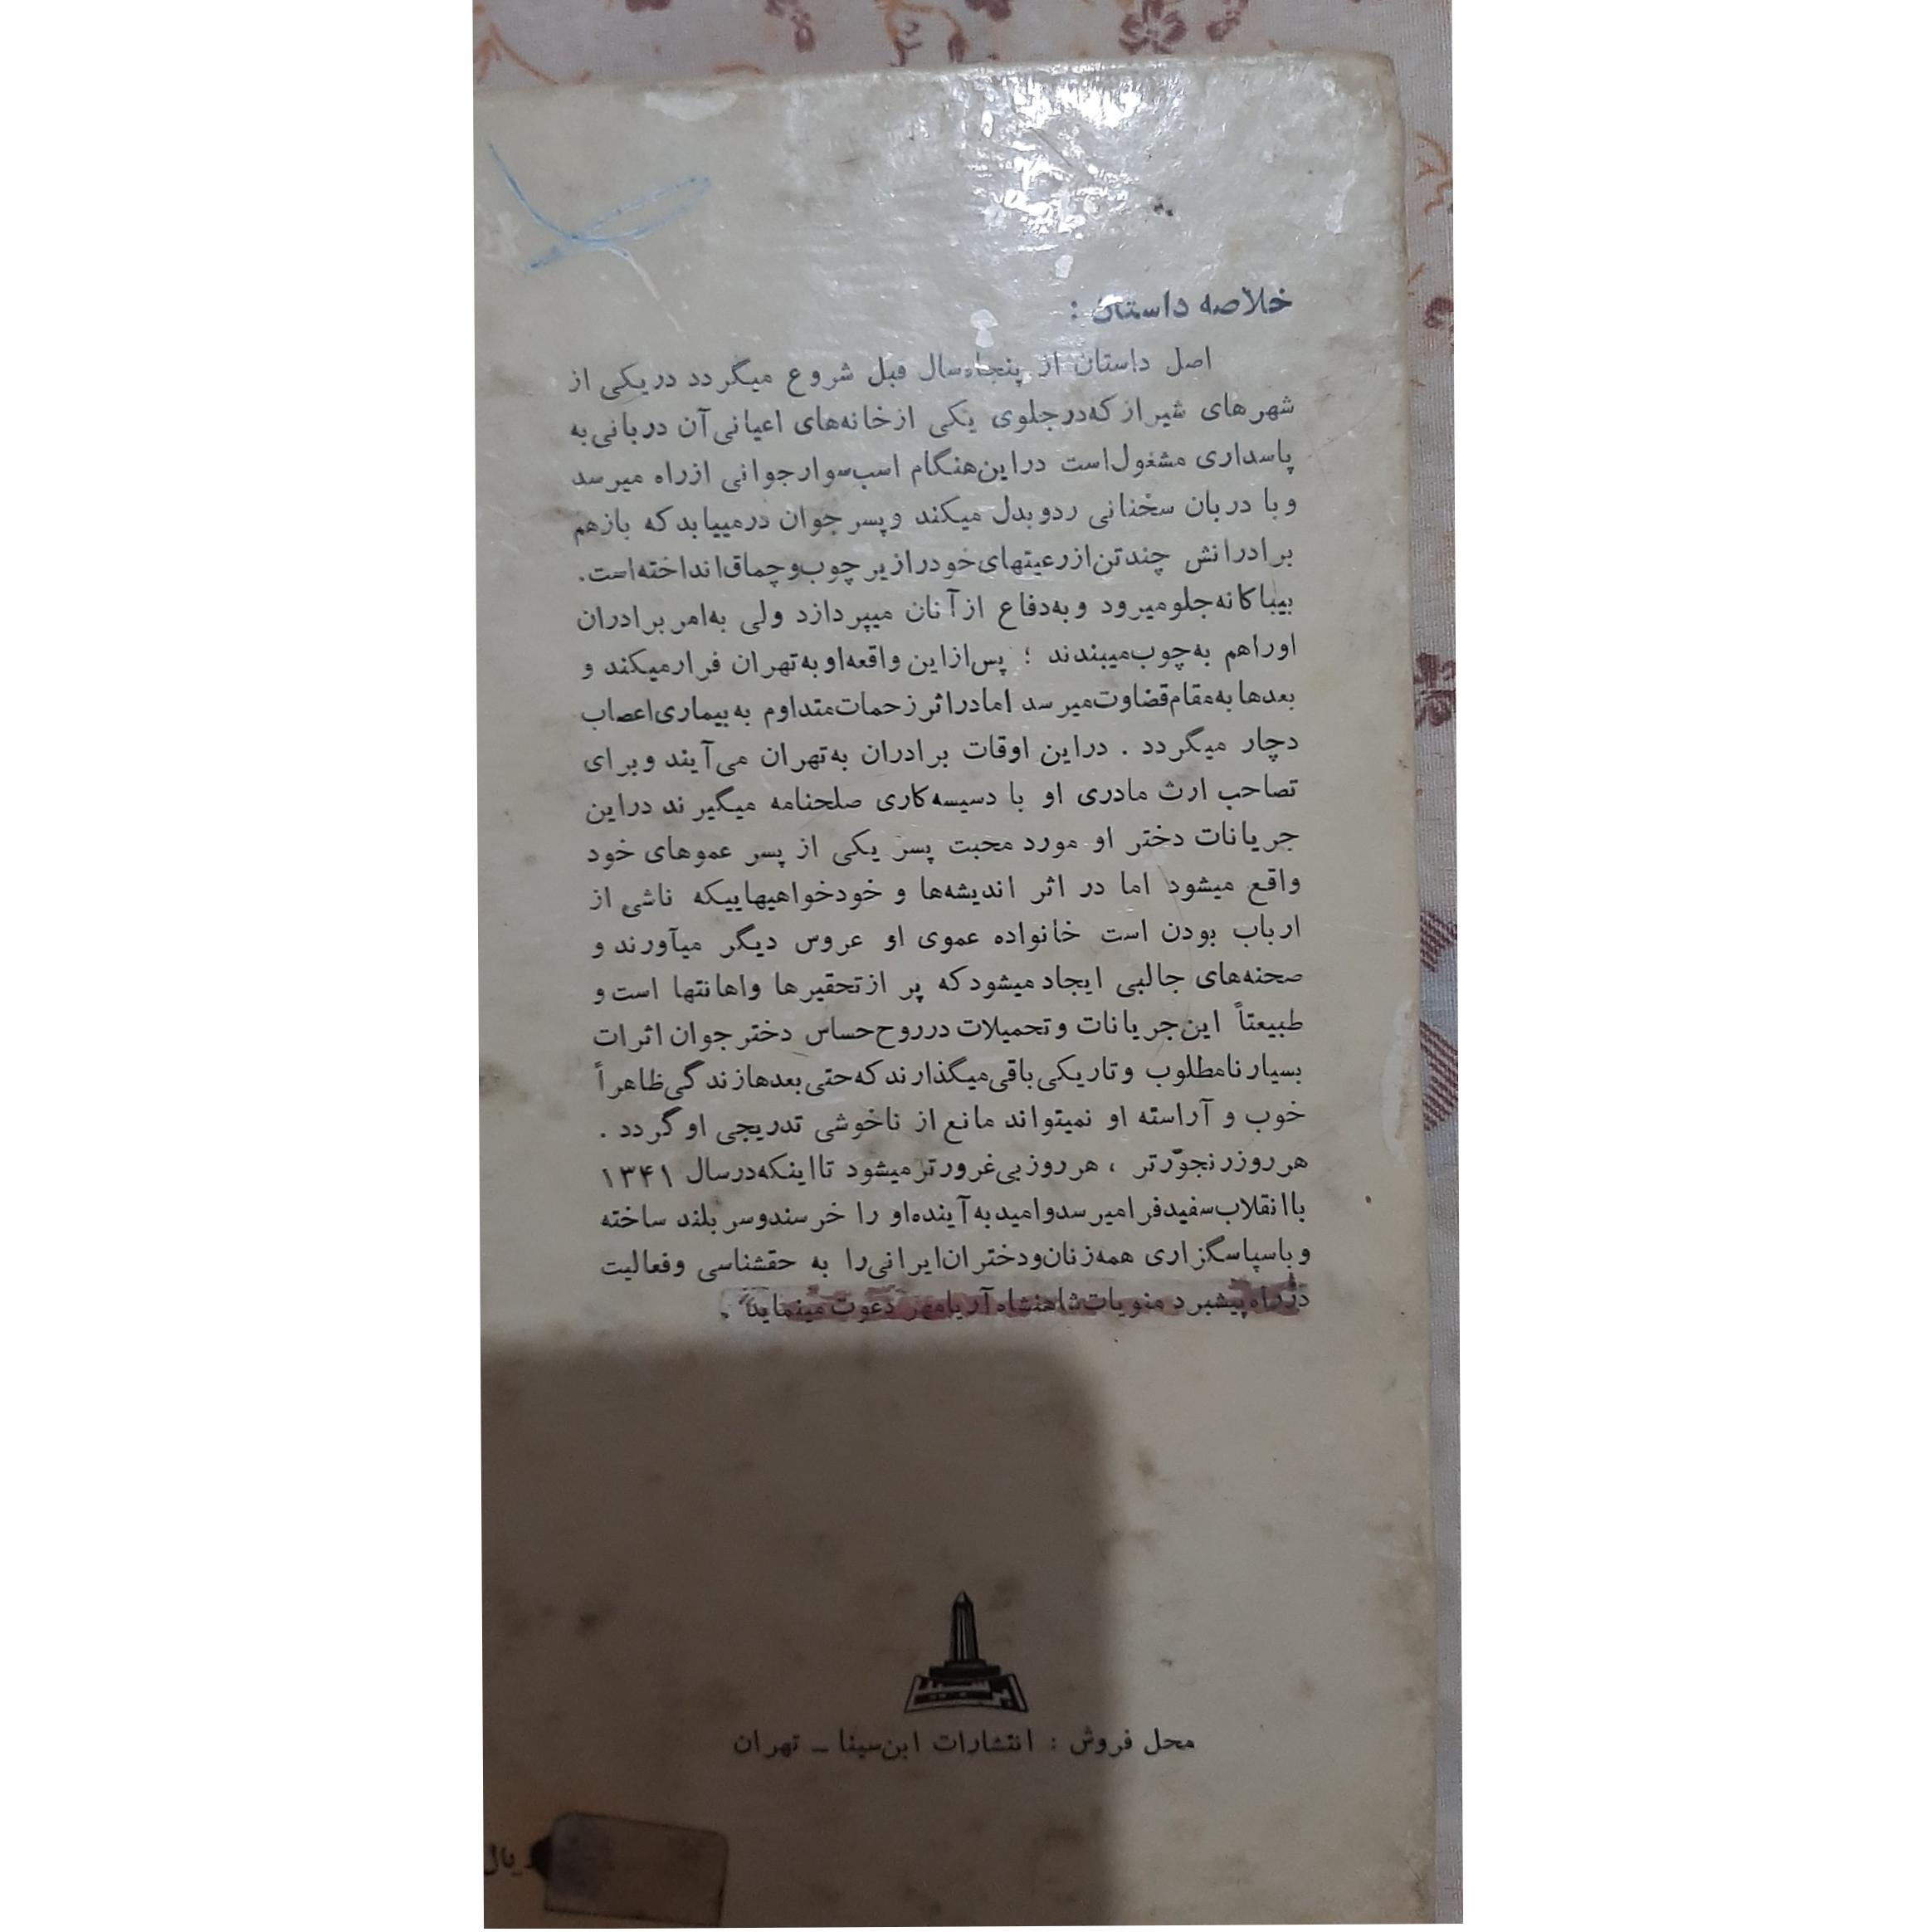 خلاصه داستان :
اصل داستان از پنجاه‌سال قبل شروع میگردد در یکی از
شهرهای شیراز که در جلوی یکی از خانه‌های اعیانی آن دربانی به
پاسداری مشغول است در این هنگام اسب‌سوار جوانی از راه میرسد
و با دربان سخنانی ردوبدل میکند و پسر جوان درمییابد که بازهم
برادرانش چند تن از رعیتهای خود را زیر چوب و چماق انداخته است.
بیباکانه جلو میرود و به‌دفاع از آنان میپردازد ولی به‌امر برادران
او را هم به چوب میبندند ؛ پس از این واقعه او به تهران فرار میکند و
بعدها به مقام قضاوت میرسد اما در اثر زحمات متداوم به بیماری اعصاب
دچار میگردد . در این اوقات برادران به تهران می‌آیند و برای
تصاحب ارث مادری او با دسیسه‌کاری صلحنامه میگیرند در این
جریانات دختر او مورد محبت پسر یکی از پسر عموهای خود
واقع میشود اما در اثر اندیشه‌ها و خودخواهیهاییکه ناشی از
ارباب بودن است خانواده عموی او عروس دیگر میآورند و
صحنه‌های جالبی ایجاد میشود که پر از تحقیرها و اهانتها است و
طبیعتاً این جریانات و تحمیلات در روح حساس دختر جوان اثرات
بسیار نامطلوب و تاریکی باقی میگذارند که حتی بعدها زندگی ظاهراً
خوب و آراسته او نمیتواند مانع از ناخوشی تدریجی او گردد .
هر روز رنجورتر ، هر روز بی‌غرورتر میشود تا اینکه در سال ۱۳۴۱
با انقلاب سفید فرا میرسد و امید به آینده او را خرسند و سربلند ساخته
و با سپاسگزاری همه زنان و دختران ایرانی را به حقشناسی و فعالیت
در راه پیشبرد منویات شاهنشاه آریامهر دعوت مینماید .
محل فروش : انتشارات ابن‌سینا ــ تهران
ریال